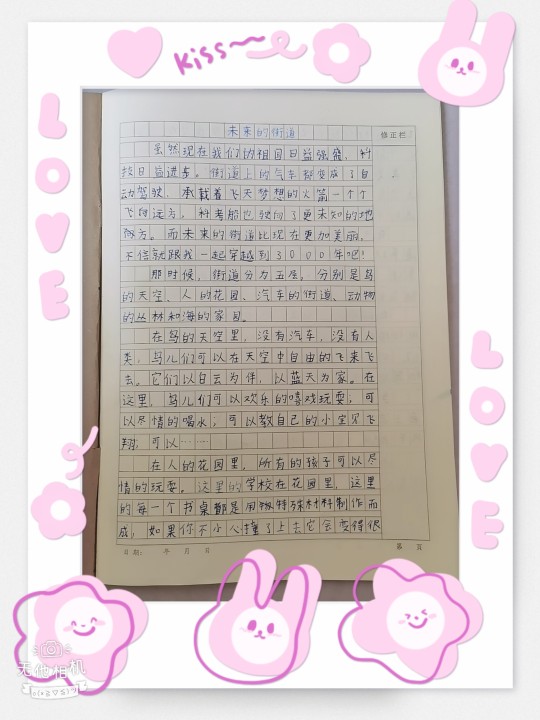 Kiss
LOVE
LOVE
未来的街道
修正栏
虽然现在我们的祖国日益强盛，科
技日益进步。街道上的汽车都变成了自
动驾驶，承载着飞天梦想的火箭一个个
飞向远方，科考船也驶向了更未知的地
方。而未来的街道比现在更加美丽，
不信就跟我一起穿越到3000年吧！
那时候，街道分为五座。分别是鸟
的天空、人的花园、汽车的街道、动物
的丛林和海的家园。
在鸟的天空里，没有汽车，没有人
类，鸟儿们可以在天空中自由的飞来飞
去。它们以白云为伴，以蓝天为家。在
这里，鸟儿们可以欢乐的嘻戏玩耍，可
以尽情的喝水，可以教自己的小宝贝飞
翔，可以……
在人的花园里，所有的孩子可以尽
情的玩耍。这里的学校在花园里，这里
的每一个书桌都是用特殊材料制作而
成，如果你不小心撞了上去它会变得很
日期： 年 月 日
第 页
无他相机